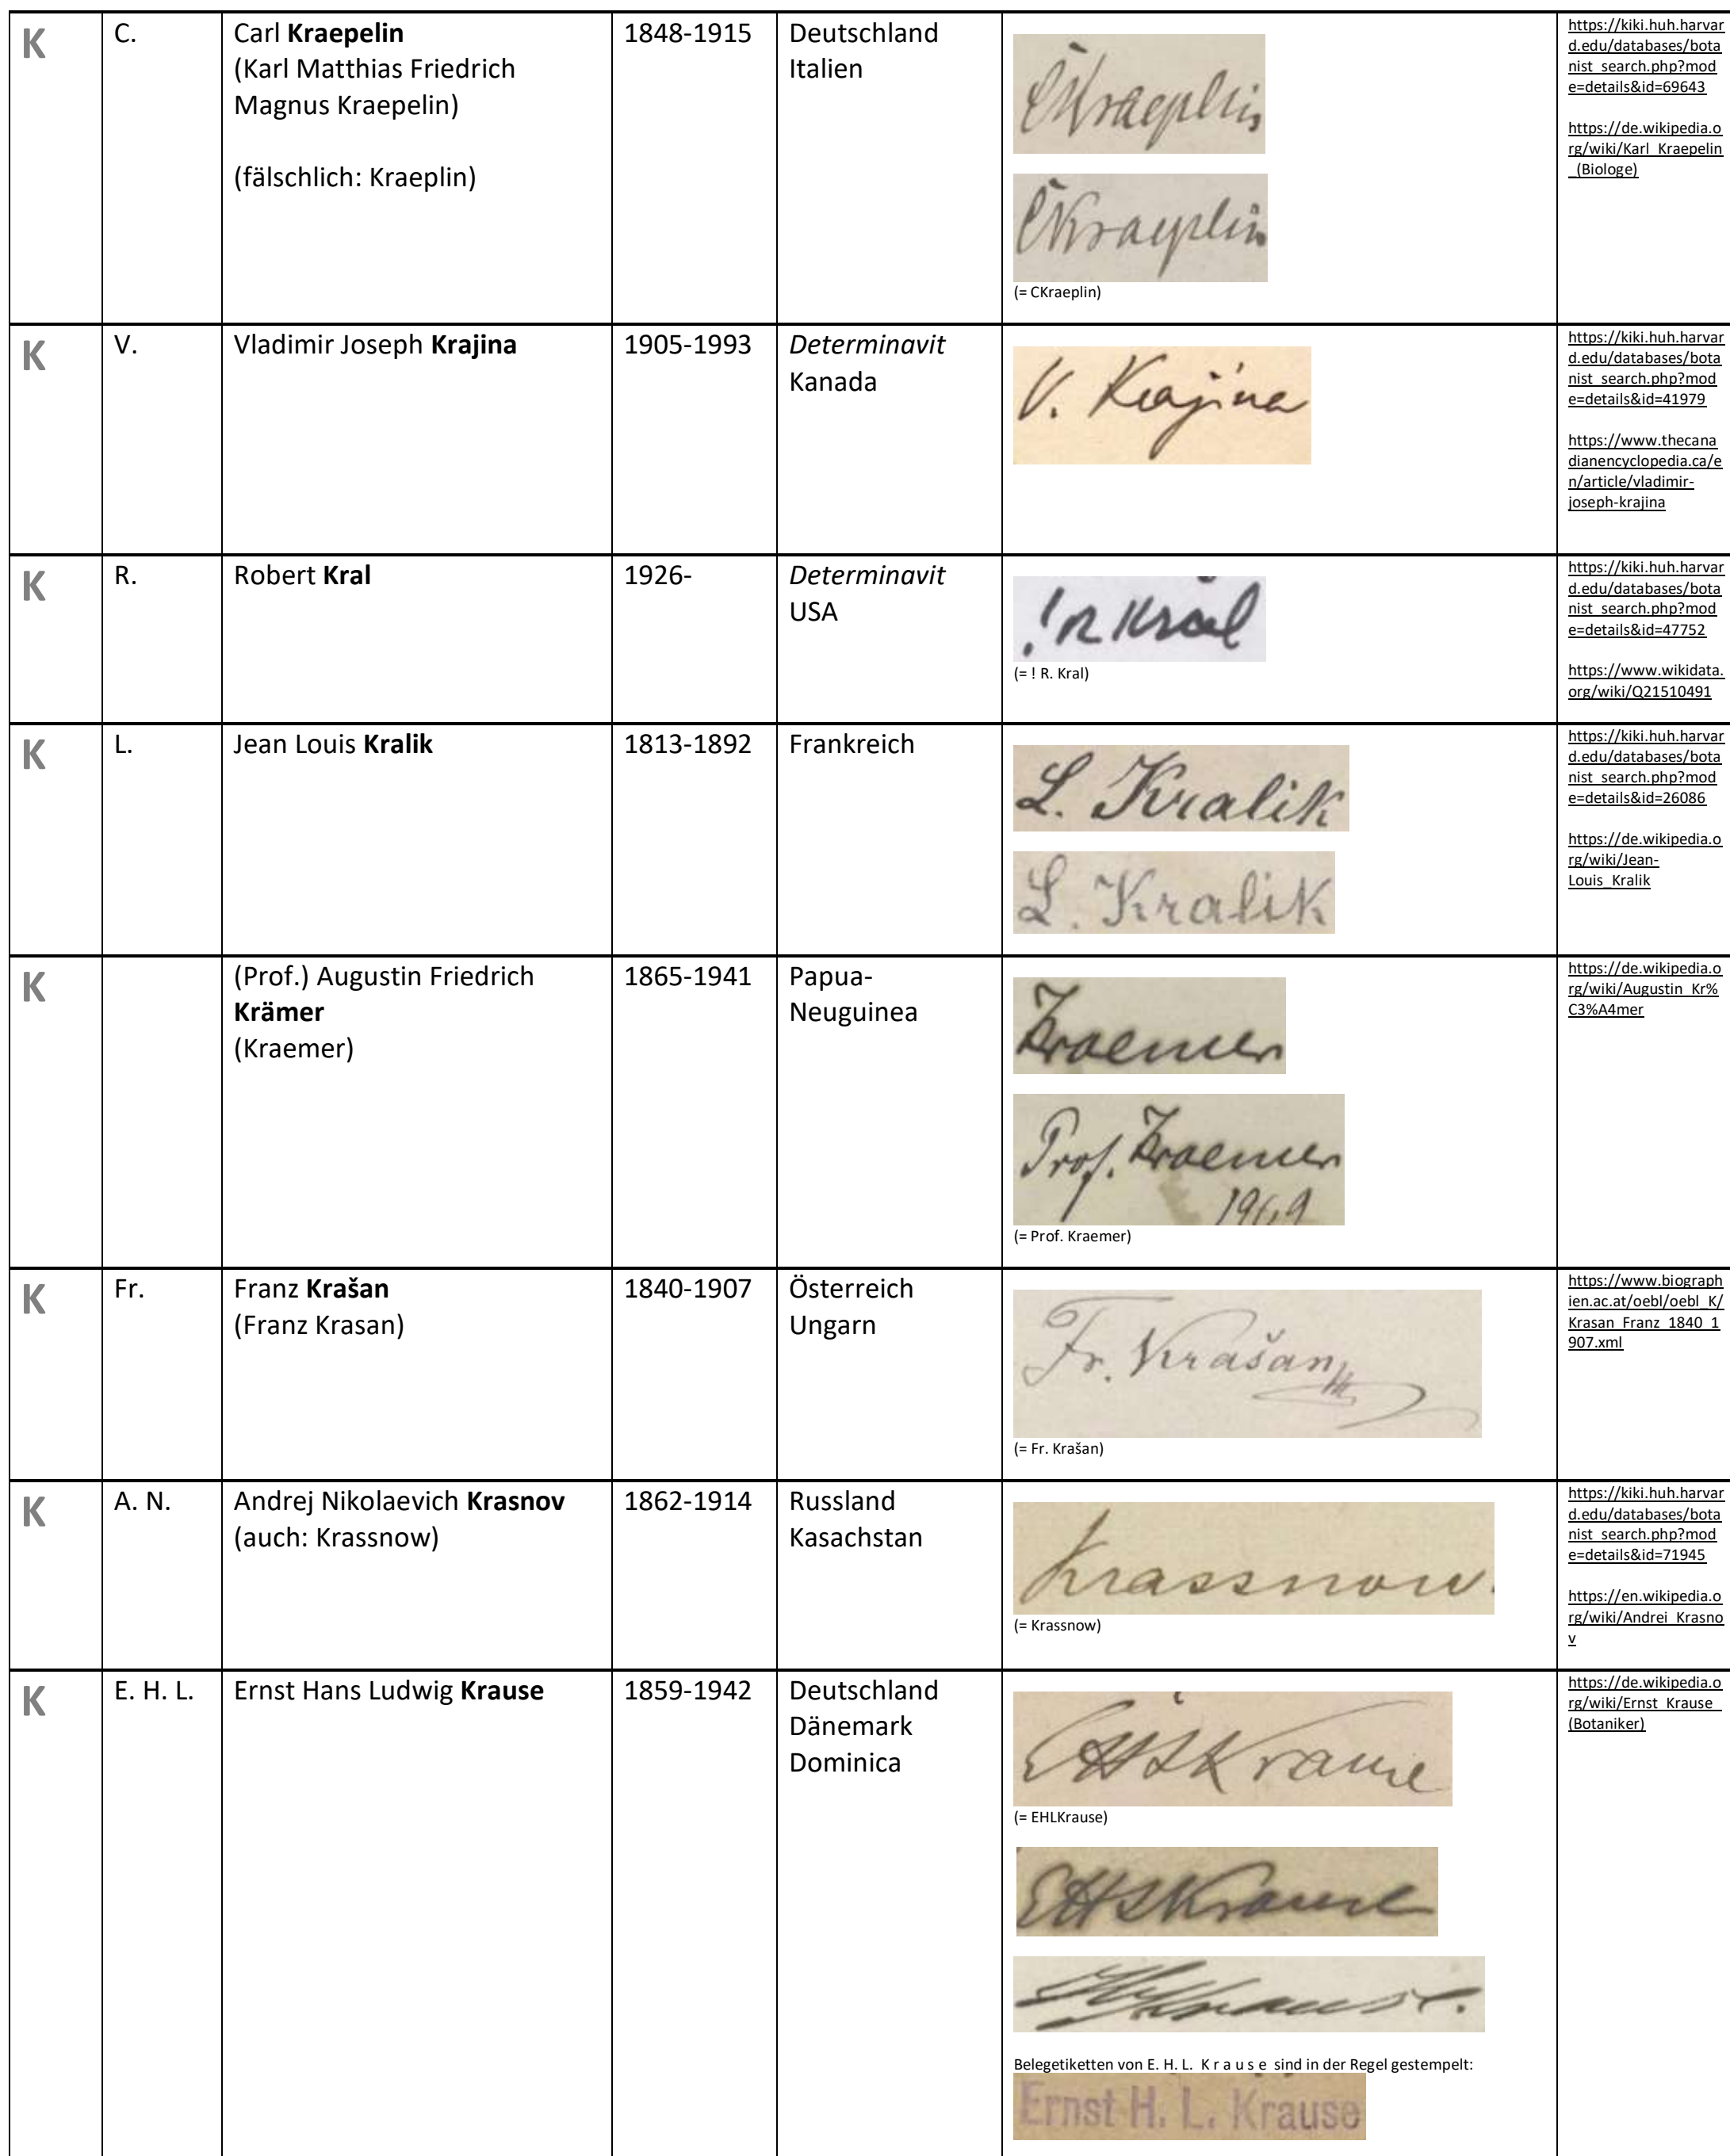 K
C.
Carl Kraepelin
(Karl Matthias Friedrich
Magnus Kraepelin)
(fälschlich: Kraeplin)
1848-1915
Deutschland
Italien
CKraeplin
CKraeplin
(= CKraeplin)
https://kiki.huh.harvar
d.edu/databases/bota
nist_search.php?mod
e=details&id=69643
https://de.wikipedia.o
rg/wiki/Karl_Kraepelin
_(Biologe)
K
V.
Vladimir Joseph Krajina
1905-1993
Determinavit
Kanada
V. Krajina
https://kiki.huh.harvar
d.edu/databases/bota
nist_search.php?mod
e=details&id=41979
https://www.thecana
dianencyclopedia.ca/e
n/article/vladimir-
joseph-krajina
K
R.
Robert Kral
1926-
Determinavit
USA
! R Kral
(= ! R. Kral)
https://kiki.huh.harvar
d.edu/databases/bota
nist_search.php?mod
e=details&id=47752
https://www.wikidata.
org/wiki/Q21510491
K
L.
Jean Louis Kralik
1813-1892
Frankreich
L. Kralik
L. Kralik
https://kiki.huh.harvar
d.edu/databases/bota
nist_search.php?mod
e=details&id=26086
https://de.wikipedia.o
rg/wiki/Jean-
Louis_Kralik
K
(Prof.) Augustin Friedrich
Krämer
(Kraemer)
1865-1941
Papua-
Neuguinea
Kraemer
Prof. Kraemer
(= Prof. Kraemer)
https://de.wikipedia.o
rg/wiki/Augustin_Kr%
C3%A4mer
K
Fr.
Franz Krašan
(Franz Krasan)
1840-1907
Österreich
Ungarn
Fr. Krašan
(= Fr. Krašan)
https://www.biograph
ien.ac.at/oebl/oebl_K/
Krasan_Franz_1840_1
907.xml
K
A. N.
Andrej Nikolaevich Krasnov
(auch: Krassnow)
1862-1914
Russland
Kasachstan
Krassnow.
(= Krassnow)
https://kiki.huh.harvar
d.edu/databases/bota
nist_search.php?mod
e=details&id=71945
https://en.wikipedia.o
rg/wiki/Andrei_Krasno
v
K
E. H. L.
Ernst Hans Ludwig Krause
1859-1942
Deutschland
Dänemark
Dominica
EHLKrause
(= EHLKrause)
EHLKrause
Krause.
Belegetiketten von E. H. L. K r a u s e sind in der Regel gestempelt:
Ernst H. L. Krause
https://de.wikipedia.o
rg/wiki/Ernst_Krause_
(Botaniker)